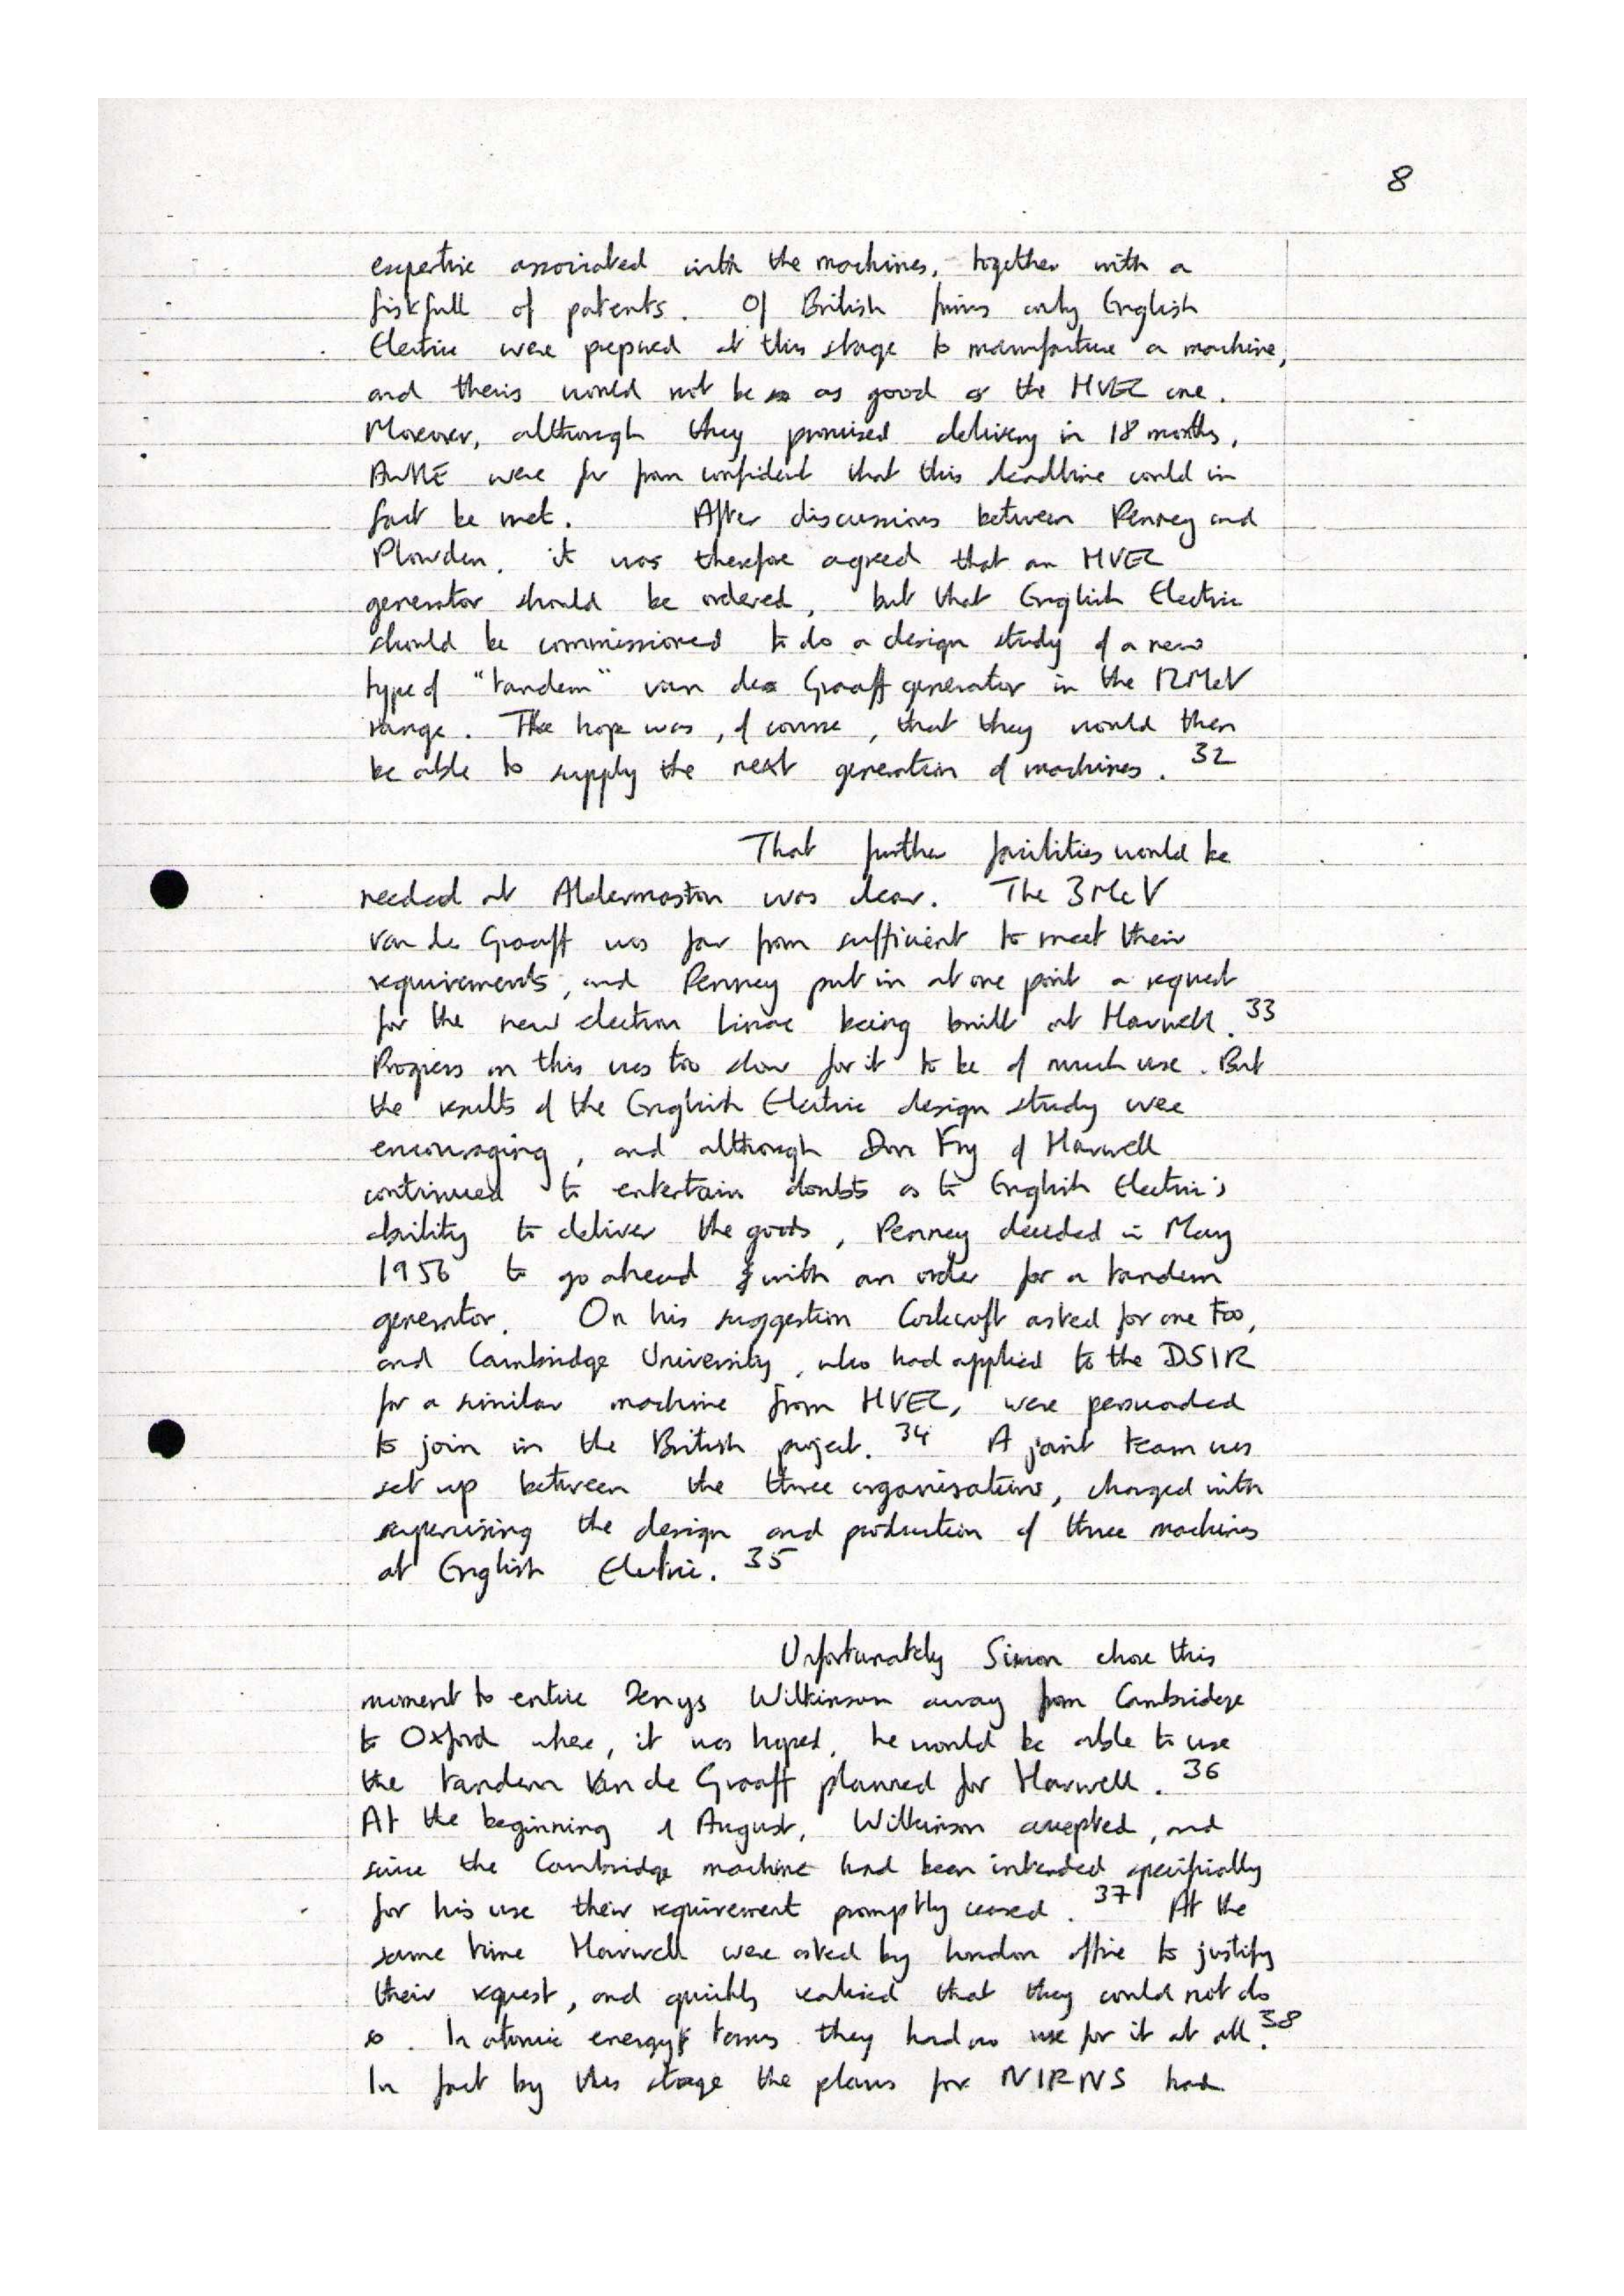 8
expertise associated with the machines, together with a
fistfull of patents. Of British firms only English
Electric were prepared at this stage to manufacture a machine,
and theirs would not be as good as the HVEC one.
Moreover, although they promised delivery in 18 months,
AWRE were far from confident that this deadline could in
fact be met. After discussions between Penney and
Plowden, it was therefore agreed that an HVEC
generator should be ordered, but that English Electric
should be commissioned to do a design study of a new
type of "tandem" van de Graaff generator in the 12MeV
range. The hope was, of course, that they would then
be able to supply the next generation of machines. 32
That further facilities would be
needed at Aldermaston was clear. The 3MeV
Van de Graaff was far from sufficient to meet their
requirements, and Penney put in at one point a request
for the new electron linac being built at Harwell. 33
Progress on this was too slow for it to be of much use. But
the results of the English Electric design study were
encouraging, and although Don Fry of Harwell
continued to entertain doubts as to English Electric's
ability to deliver the goods, Penney decided in May
1956 to go ahead with an order for a tandem
generator. On his suggestion Cockcroft asked for one too,
and Cambridge University, who had applied to the DSIR
for a similar machine from HVEC, were persuaded
to join in the British project. 34 A joint team was
set up between the three organisations, charged with
supervising the design and production of three machines
at English Electric. 35
Unfortunately Simon chose this
moment to entice Denys Wilkinson away from Cambridge
to Oxford where, it was hoped, he would be able to use
the tandem Van de Graaff planned for Harwell. 36
At the beginning of August, Wilkinson accepted, and
since the Cambridge machine had been intended specifically
for his use their requirement promptly ceased. 37 At the
same time Harwell were asked by London office to justify
their request, and quickly realised that they could not do
so. In atomic energy terms they had no use for it at all. 38
In fact by this stage the plans for NIRNS had